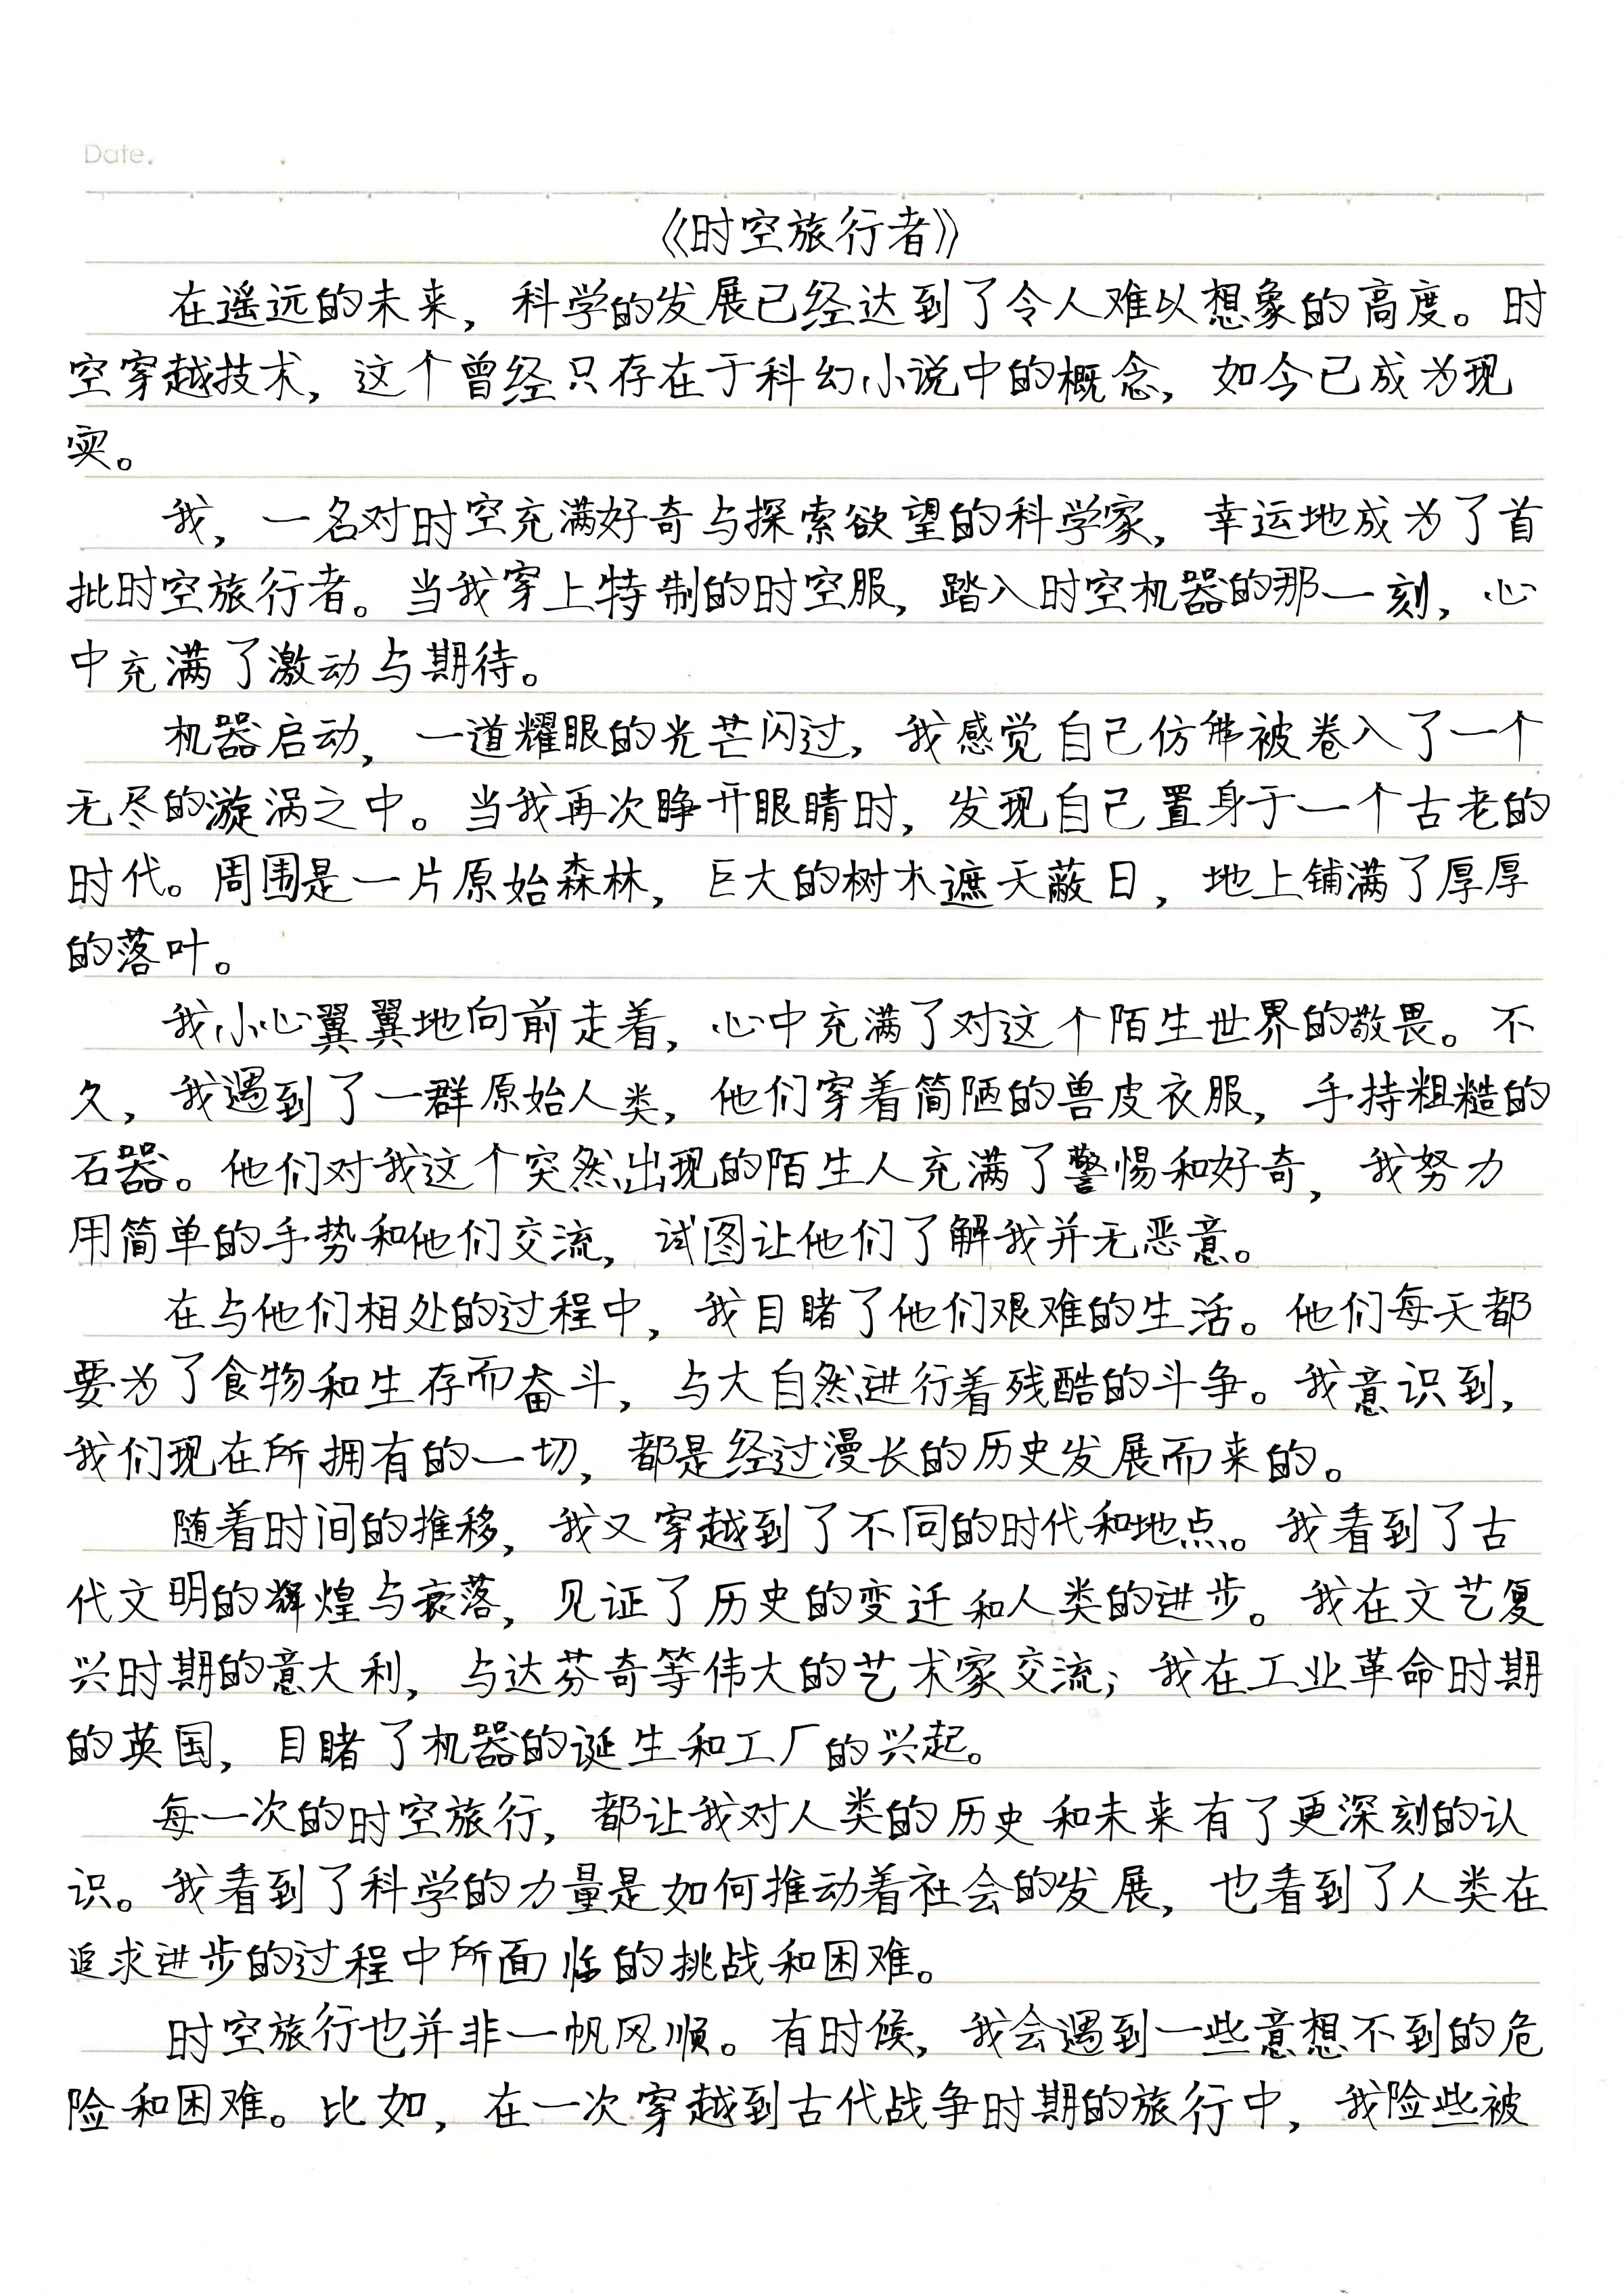 Date.
《时空旅行者》
在遥远的未来，科学的发展已经达到了令人难以想象的高度。时
空穿越技术，这个曾经只存在于科幻小说中的概念，如今已成为现
实。
我，一名对时空充满好奇与探索欲望的科学家，幸运地成为了首
批时空旅行者。当我穿上特制的时空服，踏入时空机器的那一刻，心
中充满了激动与期待。
机器启动，一道耀眼的光芒闪过，我感觉自己仿佛被卷入了一个
无尽的漩涡之中。当我再次睁开眼睛时，发现自己置身于一个古老的
时代。周围是一片原始森林，巨大的树木遮天蔽日，地上铺满了厚厚
的落叶。
我小心翼翼地向前走着，心中充满了对这个陌生世界的敬畏。不
久，我遇到了一群原始人类，他们穿着简陋的兽皮衣服，手持粗糙的
石器。他们对我这个突然出现的陌生人充满了警惕和好奇，我努力
用简单的手势和他们交流，试图让他们了解我并无恶意。
在与他们相处的过程中，我目睹了他们艰难的生活。他们每天都
要为了食物和生存而奋斗，与大自然进行着残酷的斗争。我意识到，
我们现在所拥有的一切，都是经过漫长的历史发展而来的。
随着时间的推移，我又穿越到了不同的时代和地点。我看到了古
代文明的辉煌与衰落，见证了历史的变迁和人类的进步。我在文艺复
兴时期的意大利，与达芬奇等伟大的艺术家交流；我在工业革命时期
的英国，目睹了机器的诞生和工厂的兴起。
每一次的时空旅行，都让我对人类的历史和未来有了更深刻的认
识。我看到了科学的力量是如何推动着社会的发展，也看到了人类在
追求进步的过程中所面临的挑战和困难。
时空旅行也并非一帆风顺。有时候，我会遇到一些意想不到的危
险和困难。比如，在一次穿越到古代战争时期的旅行中，我险些被